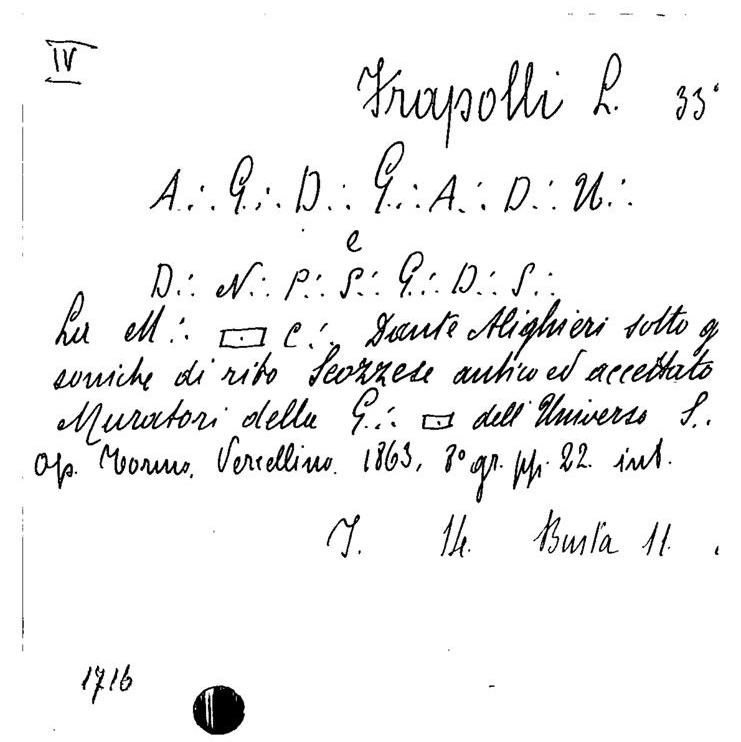 IV
Frapolli L. 33°
A∴ G∴ D∴ G∴ A∴ D∴ U∴
e
D∴ N∴ P∴ S∴ G∴ D∴ S∴
La M∴ C∴ Dante Alighieri sotto g
soniche di rito Scozzese antico ed accettato
Muratori della G∴ dell'Universo S∴
Op. Torino, Vercellino. 1863, 8° gr. pp. 22. int.
J. 14. Busta 11.
1716